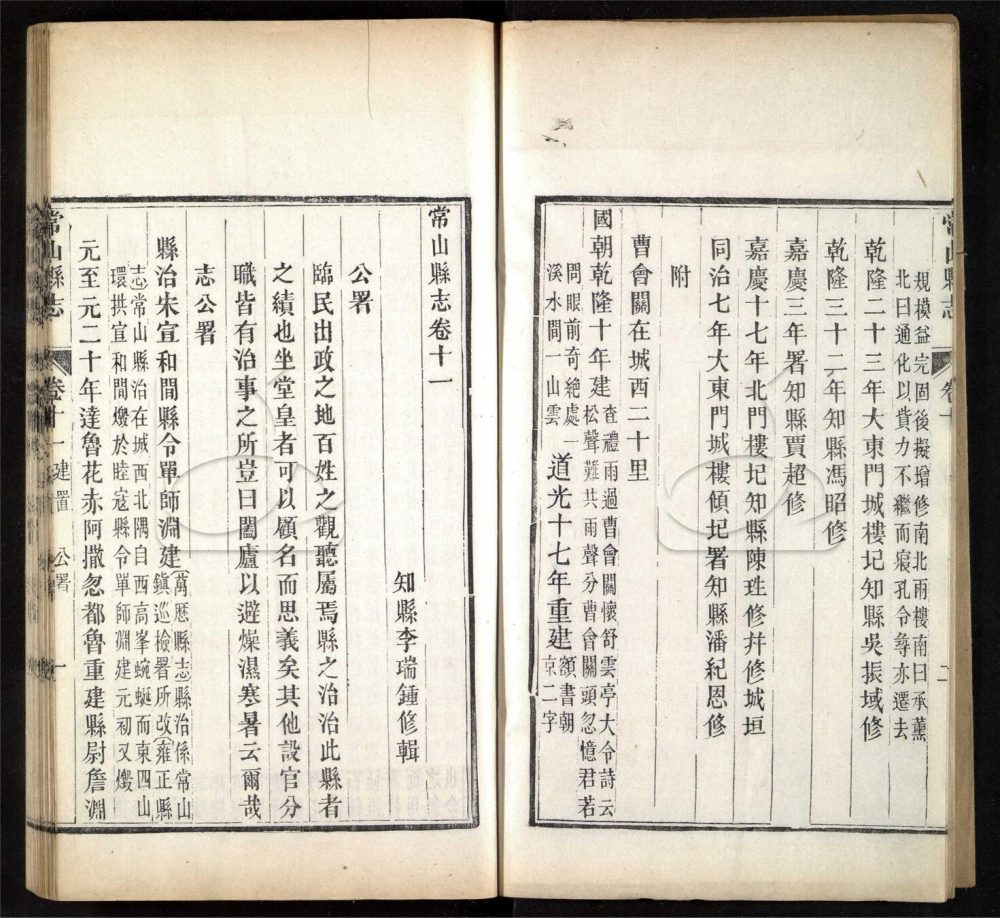 常山縣志
卷十
二
規模益完固後擬增修南北兩樓南曰承薰
北曰通化以貲力不繼而寢孔令尋亦遷去
乾隆二十三年大東門城樓圮知縣吳振域修
乾隆三十二年知縣馮昭修
嘉慶三年署知縣賈超修
嘉慶十七年北門樓圮知縣陳珄修幷修城垣
同治七年大東門城樓傾圮署知縣潘紀恩修
附
曹會關在城西二十里
國朝乾隆十年建
查禮雨過曹會關懷舒雲亭大令詩云
松聲難共雨聲分曹會關頭忽憶君若
問眼前奇絶處一
溪水間一山雲
道光十七年重建
額書朝
京二字
常山縣志卷十一
知縣李瑞鍾修輯
公署
臨民出政之地百姓之觀聽屬焉縣之治治此縣者
之績也坐堂皇者可以顧名而思義矣其他設官分
職皆有治事之所豈曰闔廬以避燥濕寒暑云爾哉
志公署
縣治朱宣和間縣令單師淵建
萬厯縣志縣治係常山
鎭巡檢署所改雍正縣
志常山縣治在城西北隅自西高峯蜿蜒而東四山
環拱宣和間燬於睦寇縣令單師淵建元初又燬
元至元二十年達魯花赤阿撒忽都魯重建縣尉詹淵
常山縣志
卷十一
建置
公署
一